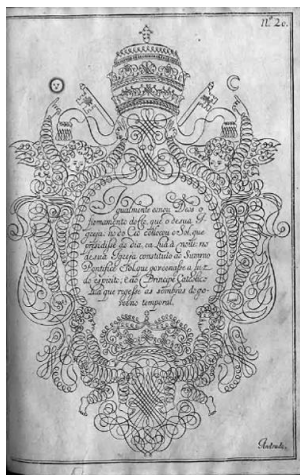 N.º 20.
Igualmente creou Deos o
firmamento deste, que o de sua I-
greja: no do Ceo collocou o Sol, que
presidisse ao dia, ea Lua à noite: no
de sua Igreja constituîo ao Summo
Pontifice Sol, que governasse a luz
do espirito, e ao Principe Catholico
Lua que regesse as sombras do go-
verno temporal.
Andrade.